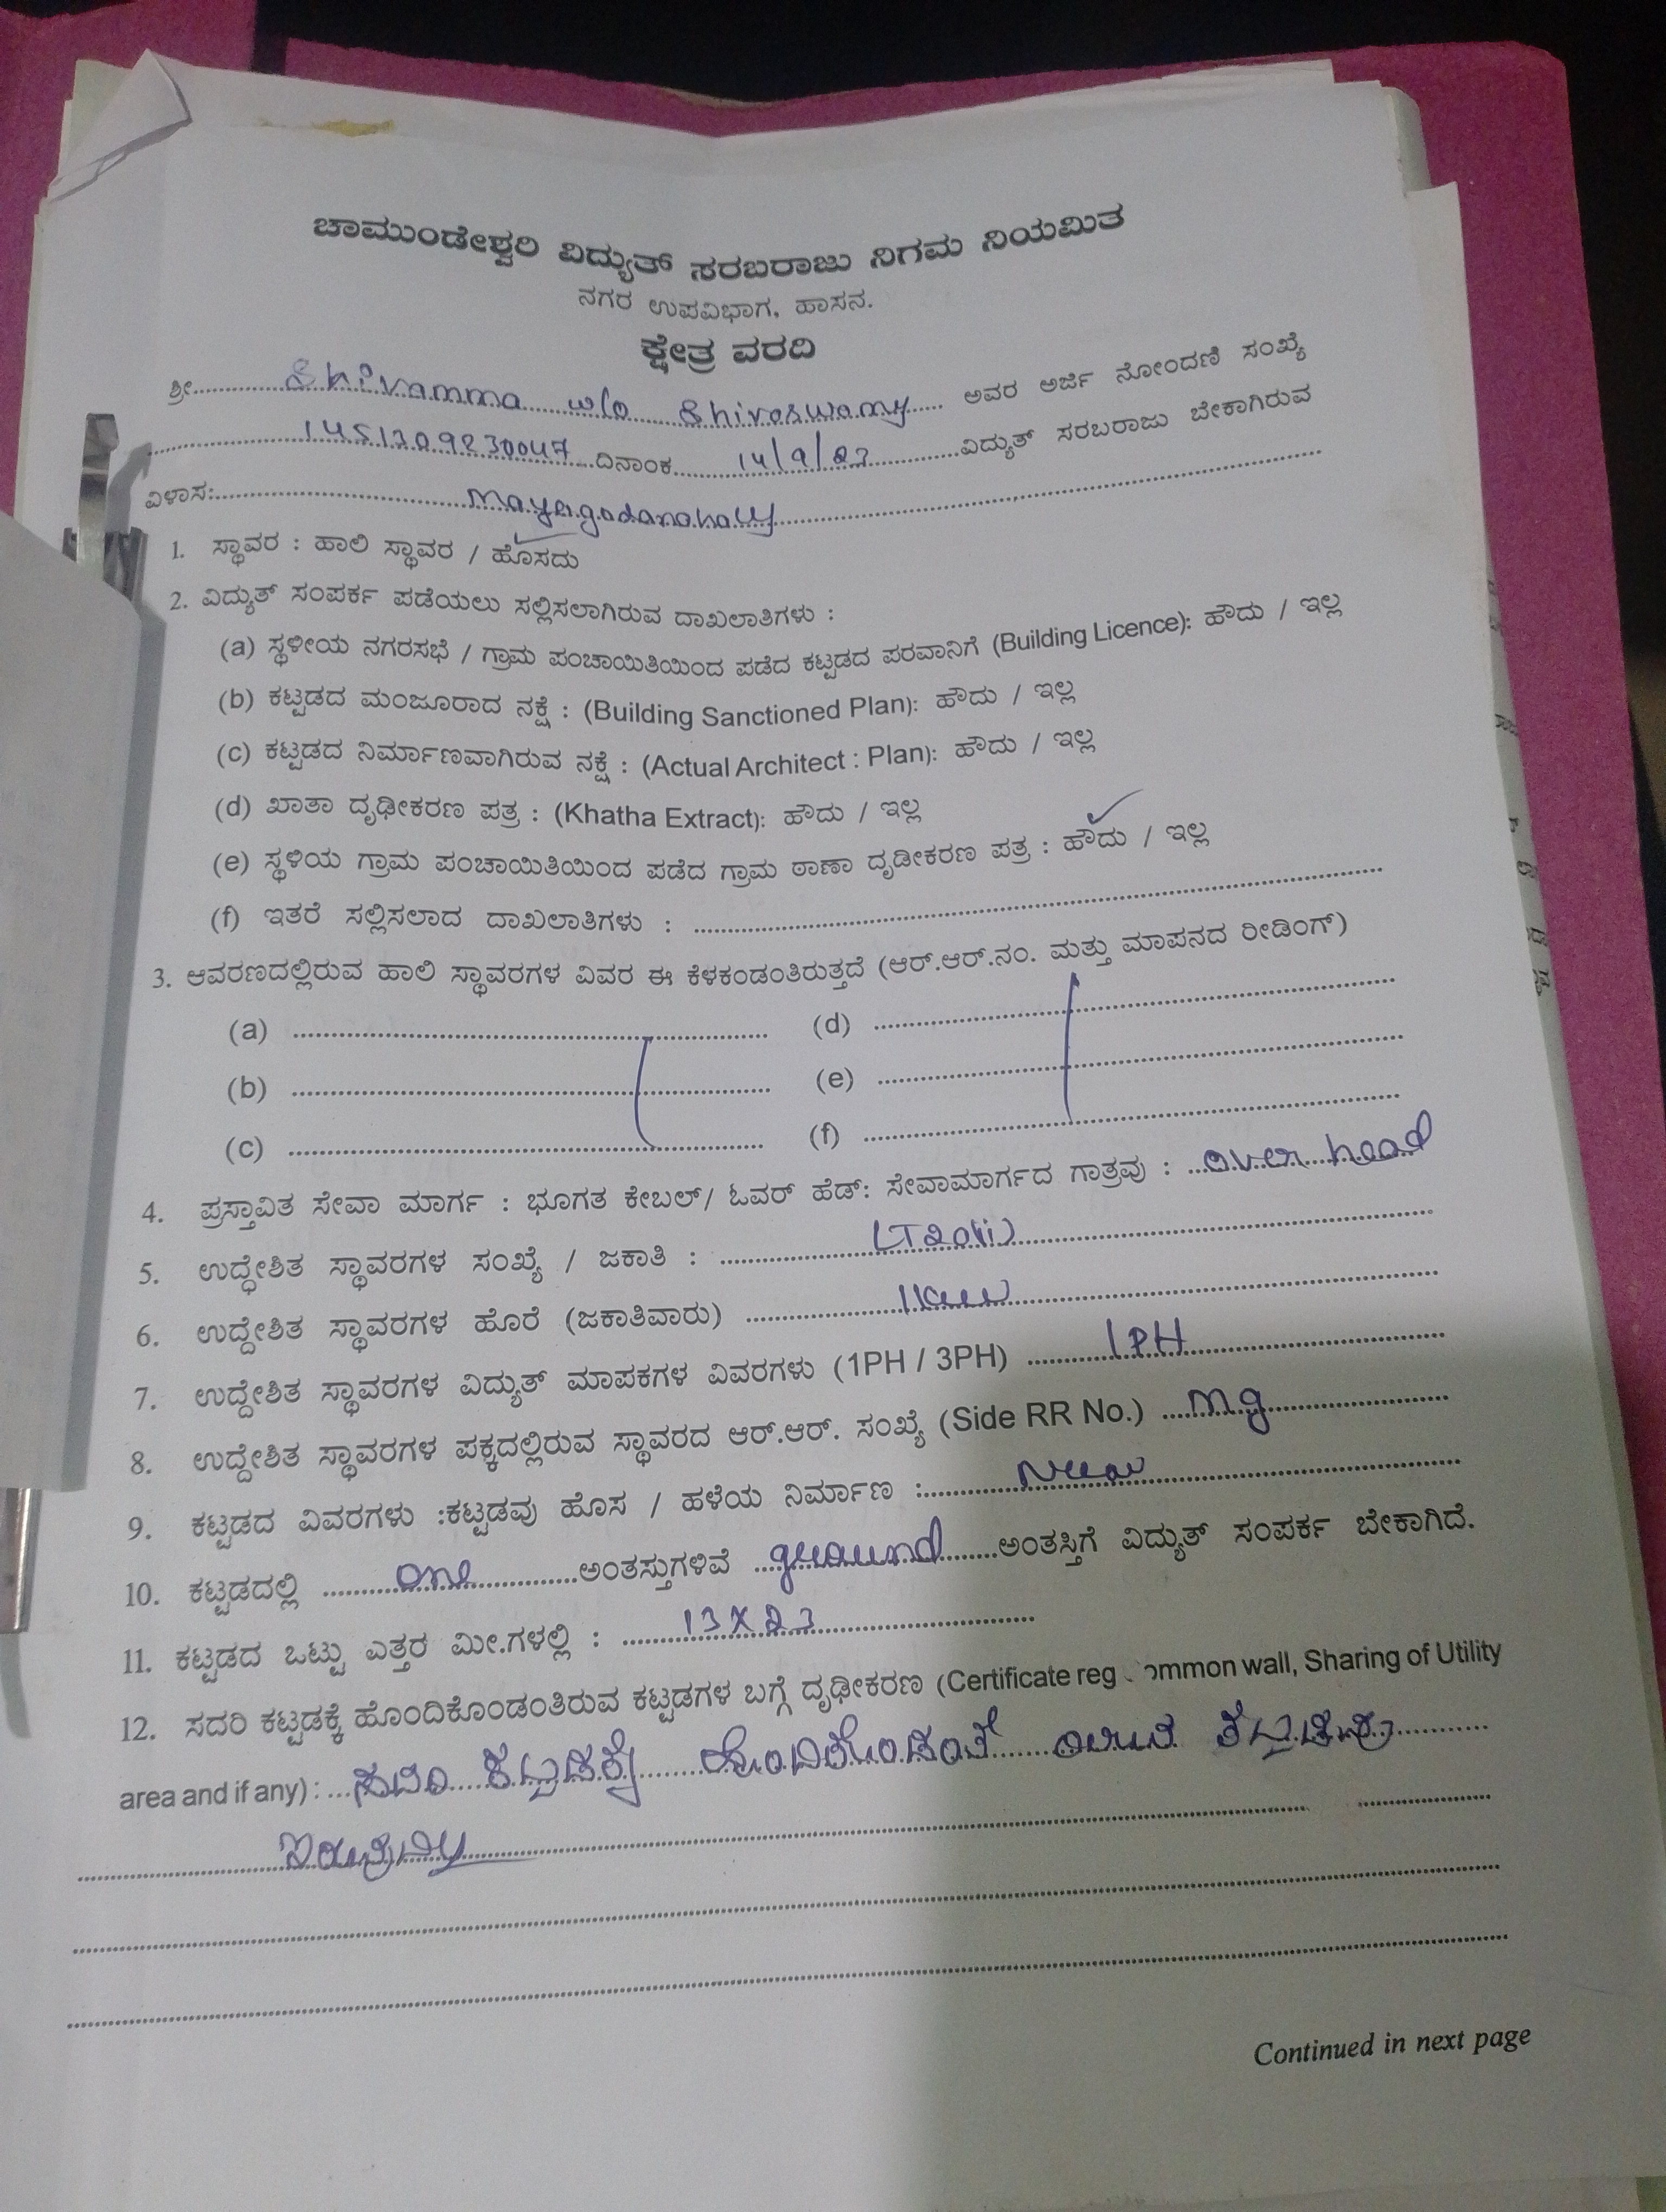 ಚಾಮುಂಡೇಶ್ವರಿ ವಿದ್ಯುತ್ ಸರಬರಾಜು ನಿಗಮ ನಿಯಮಿತ
ನಗರ ಉಪವಿಭಾಗ, ಹಾಸನ.
ಕ್ಷೇತ್ರ ವರದಿ
ಶ್ರೀ Shivamma w/o Shivaswamy ಅವರ ಅರ್ಜಿ ನೋಂದಣಿ ಸಂಖ್ಯೆ
1451309230047 ದಿನಾಂಕ 14/9/23 ವಿದ್ಯುತ್ ಸರಬರಾಜು ಬೇಕಾಗಿರುವ
ವಿಳಾಸ: Mayagodanahally
1. ಸ್ಥಾವರ : ಹಾಲಿ ಸ್ಥಾವರ / ಹೊಸದು
2. ವಿದ್ಯುತ್ ಸಂಪರ್ಕ ಪಡೆಯಲು ಸಲ್ಲಿಸಲಾಗಿರುವ ದಾಖಲಾತಿಗಳು :
(a) ಸ್ಥಳೀಯ ನಗರಸಭೆ / ಗ್ರಾಮ ಪಂಚಾಯಿತಿಯಿಂದ ಪಡೆದ ಕಟ್ಟಡದ ಪರವಾನಿಗೆ (Building Licence): ಹೌದು / ಇಲ್ಲ
(b) ಕಟ್ಟಡದ ಮಂಜೂರಾದ ನಕ್ಷೆ : (Building Sanctioned Plan): ಹೌದು / ಇಲ್ಲ
(c) ಕಟ್ಟಡದ ನಿರ್ಮಾಣವಾಗಿರುವ ನಕ್ಷೆ : (Actual Architect : Plan): ಹೌದು / ಇಲ್ಲ
(d) ಖಾತಾ ದೃಢೀಕರಣ ಪತ್ರ : (Khatha Extract): ಹೌದು / ಇಲ್ಲ
(e) ಸ್ಥಳಿಯ ಗ್ರಾಮ ಪಂಚಾಯಿತಿಯಿಂದ ಪಡೆದ ಗ್ರಾಮ ಠಾಣಾ ದೃಡೀಕರಣ ಪತ್ರ : ಹೌದು / ಇಲ್ಲ
(f) ಇತರೆ ಸಲ್ಲಿಸಲಾದ ದಾಖಲಾತಿಗಳು :
3. ಆವರಣದಲ್ಲಿರುವ ಹಾಲಿ ಸ್ಥಾವರಗಳ ವಿವರ ಈ ಕೆಳಕಂಡಂತಿರುತ್ತದೆ (ಆರ್.ಆರ್.ನಂ. ಮತ್ತು ಮಾಪನದ ರೀಡಿಂಗ್)
(a) (d)
(b) (e)
(c) (f)
4. ಪ್ರಸ್ತಾವಿತ ಸೇವಾ ಮಾರ್ಗ : ಭೂಗತ ಕೇಬಲ್/ ಓವರ್ ಹೆಡ್: ಸೇವಾಮಾರ್ಗದ ಗಾತ್ರವು : over head
5. ಉದ್ಧೇಶಿತ ಸ್ಥಾವರಗಳ ಸಂಖ್ಯೆ / ಜಕಾತಿ :
6. ಉದ್ದೇಶಿತ ಸ್ಥಾವರಗಳ ಹೊರೆ (ಜಕಾತಿವಾರು)
7. ಉದ್ದೇಶಿತ ಸ್ಥಾವರಗಳ ವಿದ್ಯುತ್ ಮಾಪಕಗಳ ವಿವರಗಳು (1PH / 3PH) 1PH
8. ಉದ್ದೇಶಿತ ಸ್ಥಾವರಗಳ ಪಕ್ಕದಲ್ಲಿರುವ ಸ್ಥಾವರದ ಆರ್.ಆರ್. ಸಂಖ್ಯೆ (Side RR No.) mg
9. ಕಟ್ಟಡದ ವಿವರಗಳು :ಕಟ್ಟಡವು ಹೊಸ / ಹಳೆಯ ನಿರ್ಮಾಣ : New
10. ಕಟ್ಟಡದಲ್ಲಿ one ಅಂತಸ್ತುಗಳಿವೆ ground ಅಂತಸ್ತಿಗೆ ವಿದ್ಯುತ್ ಸಂಪರ್ಕ ಬೇಕಾಗಿದೆ.
11. ಕಟ್ಟಡದ ಒಟ್ಟು ಎತ್ತರ ಮೀ.ಗಳಲ್ಲಿ : 13 X 23
12. ಸದರಿ ಕಟ್ಟಡಕ್ಕೆ ಹೊಂದಿಕೊಂಡಂತಿರುವ ಕಟ್ಟಡಗಳ ಬಗ್ಗೆ ದೃಢೀಕರಣ (Certificate reg ommon wall, Sharing of Utility
area and if any) : ಸದರಿ ಕಟ್ಟಡಕ್ಕೆ ಹೊಂದಿಕೊಂಡಂತೆ ಕಟ್ಟಡವು
ಇರುವುದಿಲ್ಲ
Continued in next page